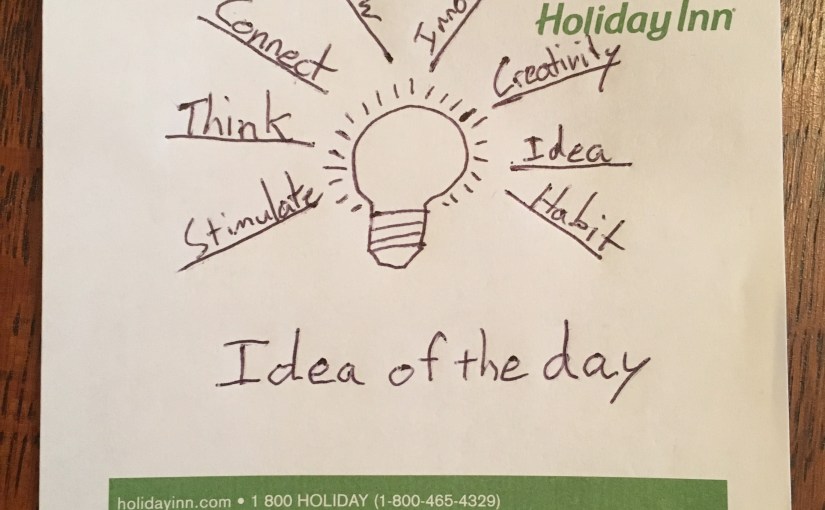 Holiday Inn
Connect
Creativity
Think
Idea
Stimulate
Habit
Idea of the day
holidayinn.com • 1 800 HOLIDAY (1-800-465-4329)